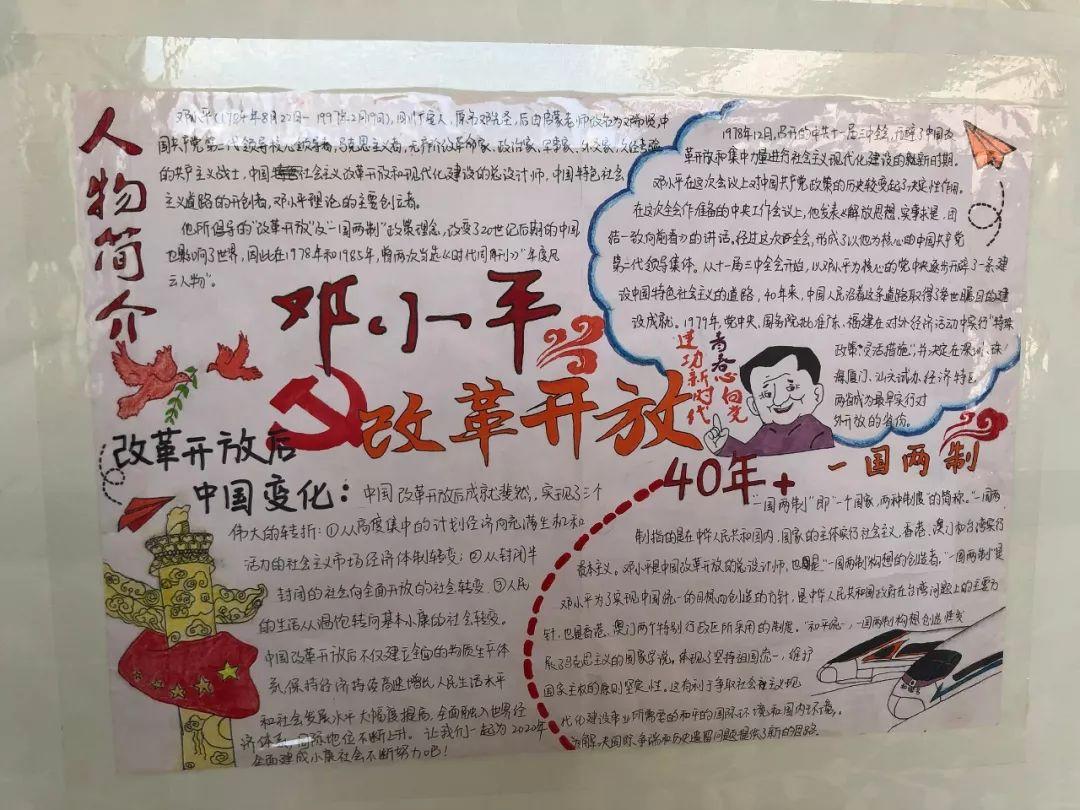 人物简介
邓小平(1904年8月22日—1997年2月19日),四川广安人,原名邓先圣,后由启蒙老师改名为邓希贤,中
国共产党第二代领导核心领导者,马克思主义者,无产阶级革命家、政治家、军事家、外交家,久经考验
的共产主义战士,中国社会主义改革开放和现代化建设的总设计师,中国特色社会
主义道路的开创者,邓小平理论的主要创立者。
他所倡导的“改革开放”及“一国两制”政策理念,改变了20世纪后期的中国
也影响了世界,因此在1978年和1985年,曾两次当选《时代周刊》“年度风
云人物”。
邓小平
改革开放
40年+
1978年12月,召开的中共十一届三中全会,开辟了中国改
革开放和集中力量进行社会主义现代化建设的崭新时期。
邓小平在这次会议上对中国共产党政策的历史转变起了决定性作用。
在这次全会作准备的中央工作会议上,他发表《解放思想,实事求是,团
结一致向前看》的讲话。经过这次全会,形成了以他为核心的中国共产党
第二代领导集体。从十一届三中全会开始,以邓小平为核心的党中央逐步开辟了一条建
设中国特色社会主义的道路,40年来,中国人民沿着这条道路取得了举世瞩目的建
设成就。1979年,党中央、国务院批准广东、福建在对外经济活动中实行“特殊
政策”“灵活措施”,并决定在深圳、珠
海、厦门、汕头试办经济特区
两省成为最早实行对
外开放的省份。
青春心向党
建功新时代
改革开放后
中国变化:
中国改革开放后成就斐然,实现了三个
伟大的转折:①从高度集中的计划经济向充满生机和
活力的社会主义市场经济体制转变;②从封闭半
封闭的社会向全面开放的社会转变 ③人民
的生活从温饱转向基本小康的社会转变。
中国改革开放后不仅建立全面的物质生平体
系,保持经济持续高速增长,人民生活水平
和社会发展水平大幅度提高,全面融入世界经
济体系,国际地位不断上升。让我们一起为2020年
全面建成小康社会不断努力吧!
一国两制
“一国两制”即“一个国家,两种制度”的简称。“一国两
制指的是在中华人民共和国内,国家的主体实行社会主义,香港、澳门和台湾实行
资本主义。邓小平是中国改革开放的总设计师,也是“一国两制构想的创造者,“一国两制”是
邓小平为了实现中国统一的目标而创造的方针,是中华人民共和国政府在台湾问题上的主要方
针,也是香港、澳门两个特别行政区所采用的制度。“和平统一,一国两制构想创造性发
展了马克思主义的国家学说,体现了坚持祖国统一,维护
国家主权的原则坚定性。这有利于争取社会主义现
代化建设事业所需要的和平的国际环境和国内环境。
为解决国际争端和历史遗留问题提供了新的思路。
和谐号